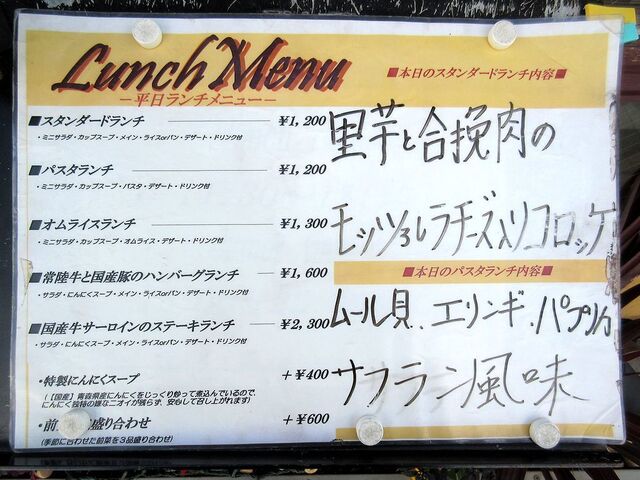 Lunch Menu
－平日ランチメニュー－
■スタンダードランチ ¥1,200
・ミニサラダ・カップスープ・メイン・ライスorパン・デザート・ドリンク付
■パスタランチ ¥1,200
・ミニサラダ・カップスープ・パスタ・デザート・ドリンク付
■オムライスランチ ¥1,300
・ミニサラダ・カップスープ・オムライス・デザート・ドリンク付
■常陸牛と国産豚のハンバーグランチ ¥1,600
・サラダ・にんにくスープ・メイン・ライスorパン・デザート・ドリンク付
■国産牛サーロインのステーキランチ ¥2,300
・サラダ・にんにくスープ・メイン・ライスorパン・デザート・ドリンク付
・特製にんにくスープ +¥400
(【国産】青森県産にんにくをじっくり炒って煮込んでいるので、
にんにく独特の嫌なニオイが残らず、安心して召し上がれます)
・前 盛り合わせ +¥600
(季節に合わせた前菜を3品盛り合わせ)
■本日のスタンダードランチ内容■
里芋と合挽肉の
モッツァレラチーズ入りコロッケ
■本日のパスタランチ内容■
ムール貝、エリンギ、パプリカ
サフラン風味